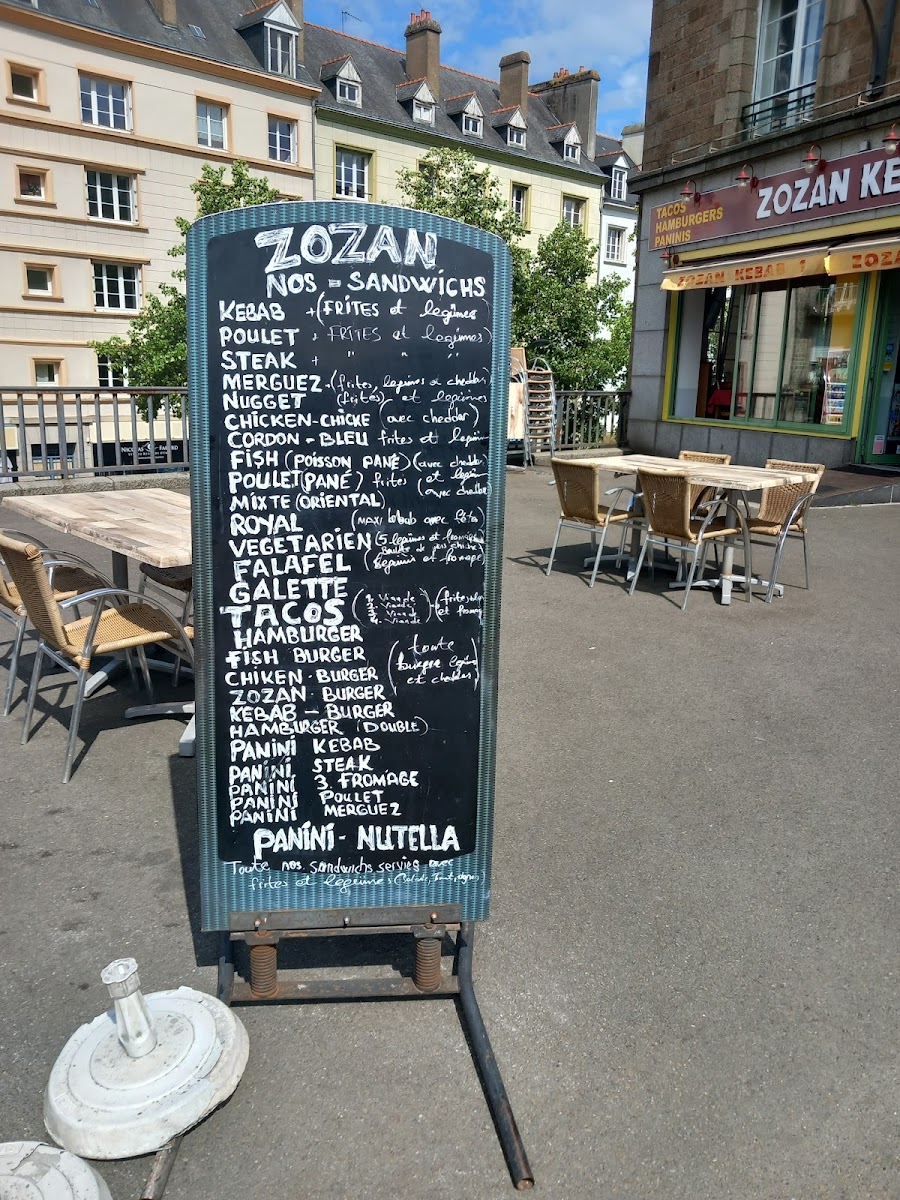 ZOZAN
NOS - SANDWICHS
KEBAB + (FRITES et légumes
POULET + FRITES et légumes)
STEAK + " " "
MERGUEZ - (frites, legumes & cheddar)
NUGGET (frites) et legumes
CHICKEN-CHICKE (avec cheddar)
CORDON - BLEU frites et légum
FISH (POISSON PANÉ) (avec cheddar)
POULET (PANÉ) frites et légum
(avec chedder)
MIXTE (ORIENTAL)
ROYAL (MAXI kebab avec
VEGETARIEN (5 legumes et fromages
FALAFEL
legumes et fromage)
GALETTE
TACOS (1. Viande
2. Viande
3. Viande
4. Viande) - (frites
et fromage
HAMBURGER
FISH BURGER
CHIKEN - BURGER
(toute
burger legumes
et cheddar)
ZOZAN BURGER
KEBAB - BURGER
HAMBURGER (DOUBLE)
PANINI KEBAB
PANINI STEAK
PANINI 3. FROMAGE
PANINI POULET
PANINI MERGUEZ
PANINI - NUTELLA
Toute nos sandwichs servies avec
frites et légumes (Salade, Tomt, oignons
TACOS
HAMBURGERS
PANINIS
ZOZAN KE
ZOZAN KEBAB 1
ZOZA